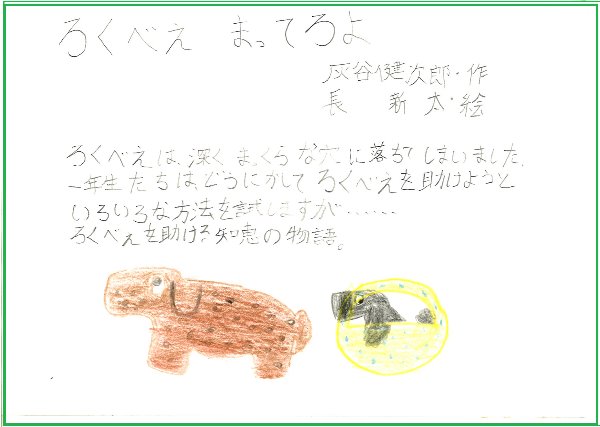 ろくべえ まってろよ
灰谷健次郎・作
長 新太・絵
ろくべえは、深くまっくらな穴に落ちてしまいました。
一年生たちは、どうにかして ろくべえを助けようと
いろいろな方法を試しますが……
ろくべえを助ける知恵の物語。